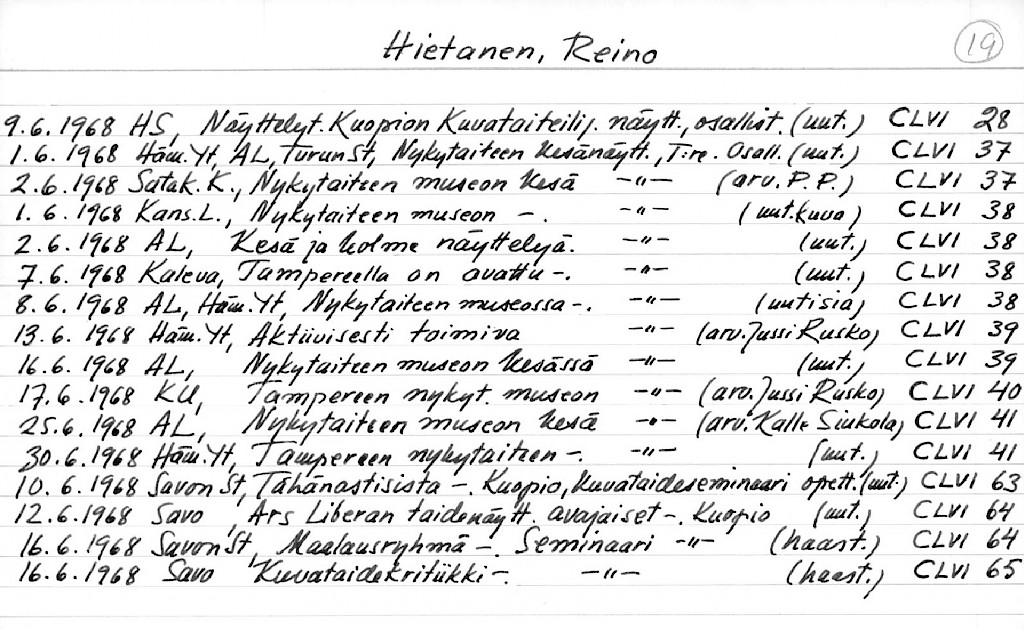 Hietanen, Reino 19
9.6.1968 HS, Näyttelyt. Kuopion Kuvataiteilij. näytt., osallist. (uut.) CLVI 28
1.6.1968 Häm.Yt, AL, TurunSt, Nykytaiteen kesänäytt., T:re. Osall. (uut.) CLVI 37
2.6.1968 Satak.K., Nykytaiteen museon kesä —"— (arv. P.P.) CLVI 37
1.6.1968 Kans.L., Nykytaiteen museon —. —"— (uut.kuva) CLVI 38
2.6.1968 AL, Kesä ja kolme näyttelyä. —"— (uut.) CLVI 38
7.6.1968 Kaleva, Tampereella on avattu —. —"— (uut.) CLVI 38
8.6.1968 AL, Häm.Yt, Nykytaiteen museossa —. —"— (uutisia) CLVI 38
13.6.1968 Häm.Yt, Aktiivisesti toimiva —"— (arv. Jussi Rusko) CLVI 39
16.6.1968 AL, Nykytaiteen museon kesässä —"— (uut.) CLVI 39
17.6.1968 KU, Tampereen nykyt. museon —"— (arv. Jussi Rusko) CLVI 40
25.6.1968 AL, Nykytaiteen museon kesä —"— (arv. Kalle Siukola) CLVI 41
30.6.1968 Häm.Yt, Tampereen nykytaiteen —. —"— (uut.) CLVI 41
10.6.1968 Savon St, Tähänastisista —. Kuopio, kuvataideseminaari opett. (uut.) CLVI 63
12.6.1968 Savo, Ars Liberan taidenäytt. avajaiset —. Kuopio (uut.) CLVI 64
16.6.1968 Savon St, Maalausryhmä —. Seminaari —"— (haast.) CLVI 64
16.6.1968 Savo Kuvataidekritiikki —. —"— (haast.) CLVI 65